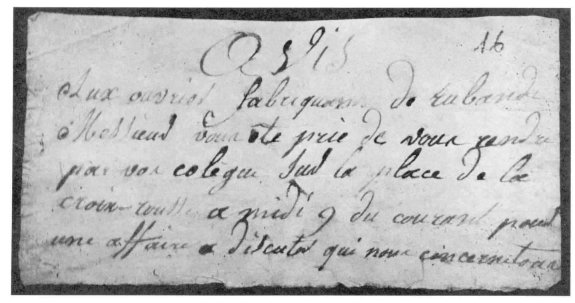 Avis 16
Aux ouvries fabriquans de rubands
Messieurs vous ete prie de vous rendre
par vos colègue sur la place de la
croix-rousse a midi 9 du courant pour
une affaire a discuter qui nous concernetous